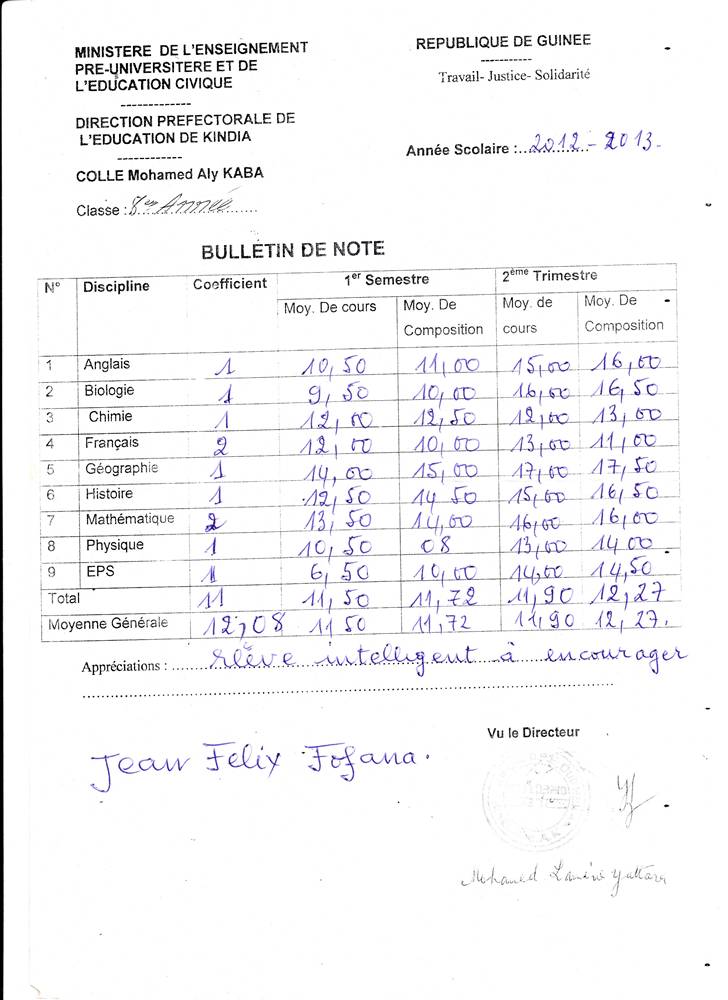 MINISTERE DE L'ENSEIGNEMENT
PRE-UNIVERSITERE ET DE
L'EDUCATION CIVIQUE
-------------
DIRECTION PREFECTORALE DE
L'EDUCATION DE KINDIA
------------
COLLE Mohamed Aly KABA
Classe : 8ème Année
REPUBLIQUE DE GUINEE
-----------
Travail- Justice- Solidarité
Année Scolaire : 2012 - 2013.
BULLETIN DE NOTE
N° Discipline Coefficient 1er Semestre 2ème Trimestre
Moy. De cours Moy. De Composition Moy. de cours Moy. De Composition
1 Anglais 1 10,50 11,00 15,00 16,00
2 Biologie 1 9,50 10,00 16,00 16,50
3 Chimie 1 12,00 12,50 12,00 13,00
4 Français 2 12,00 10,00 13,00 11,00
5 Géographie 1 14,00 15,00 17,00 17,50
6 Histoire 1 12,50 14 50 15,00 16,50
7 Mathématique 2 13,50 14,00 16,00 16,00
8 Physique 1 10,50 08 13,00 14 00
9 EPS 1 6,50 10,00 14,00 14,50
Total 11 11,50 11,72 11,90 12,27
Moyenne Générale 12,08 11 50 11,72 11,90 12,27.
Appréciations : élève intelligent à encourager
Jean Felix Fofana.
Vu le Directeur
Mohamed Lamine Yattara